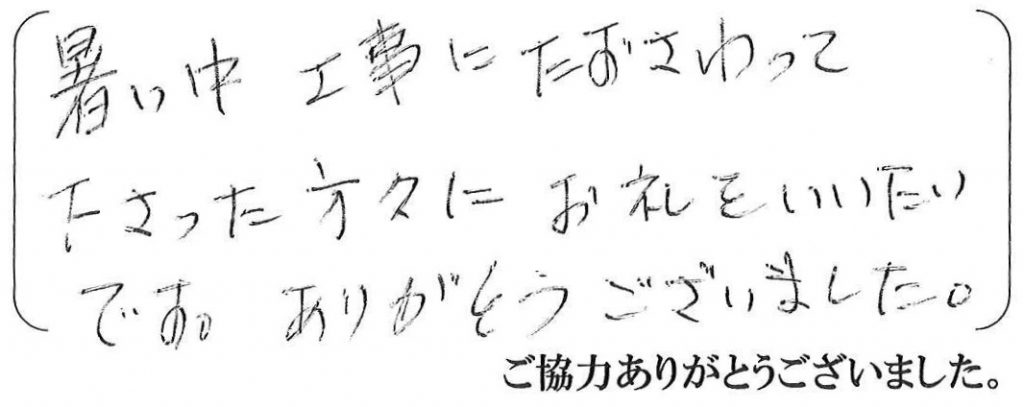 暑い中 工事にたずさわって
下さった方々に お礼をいいたい
です。ありがとうございました。
ご協力ありがとうございました。